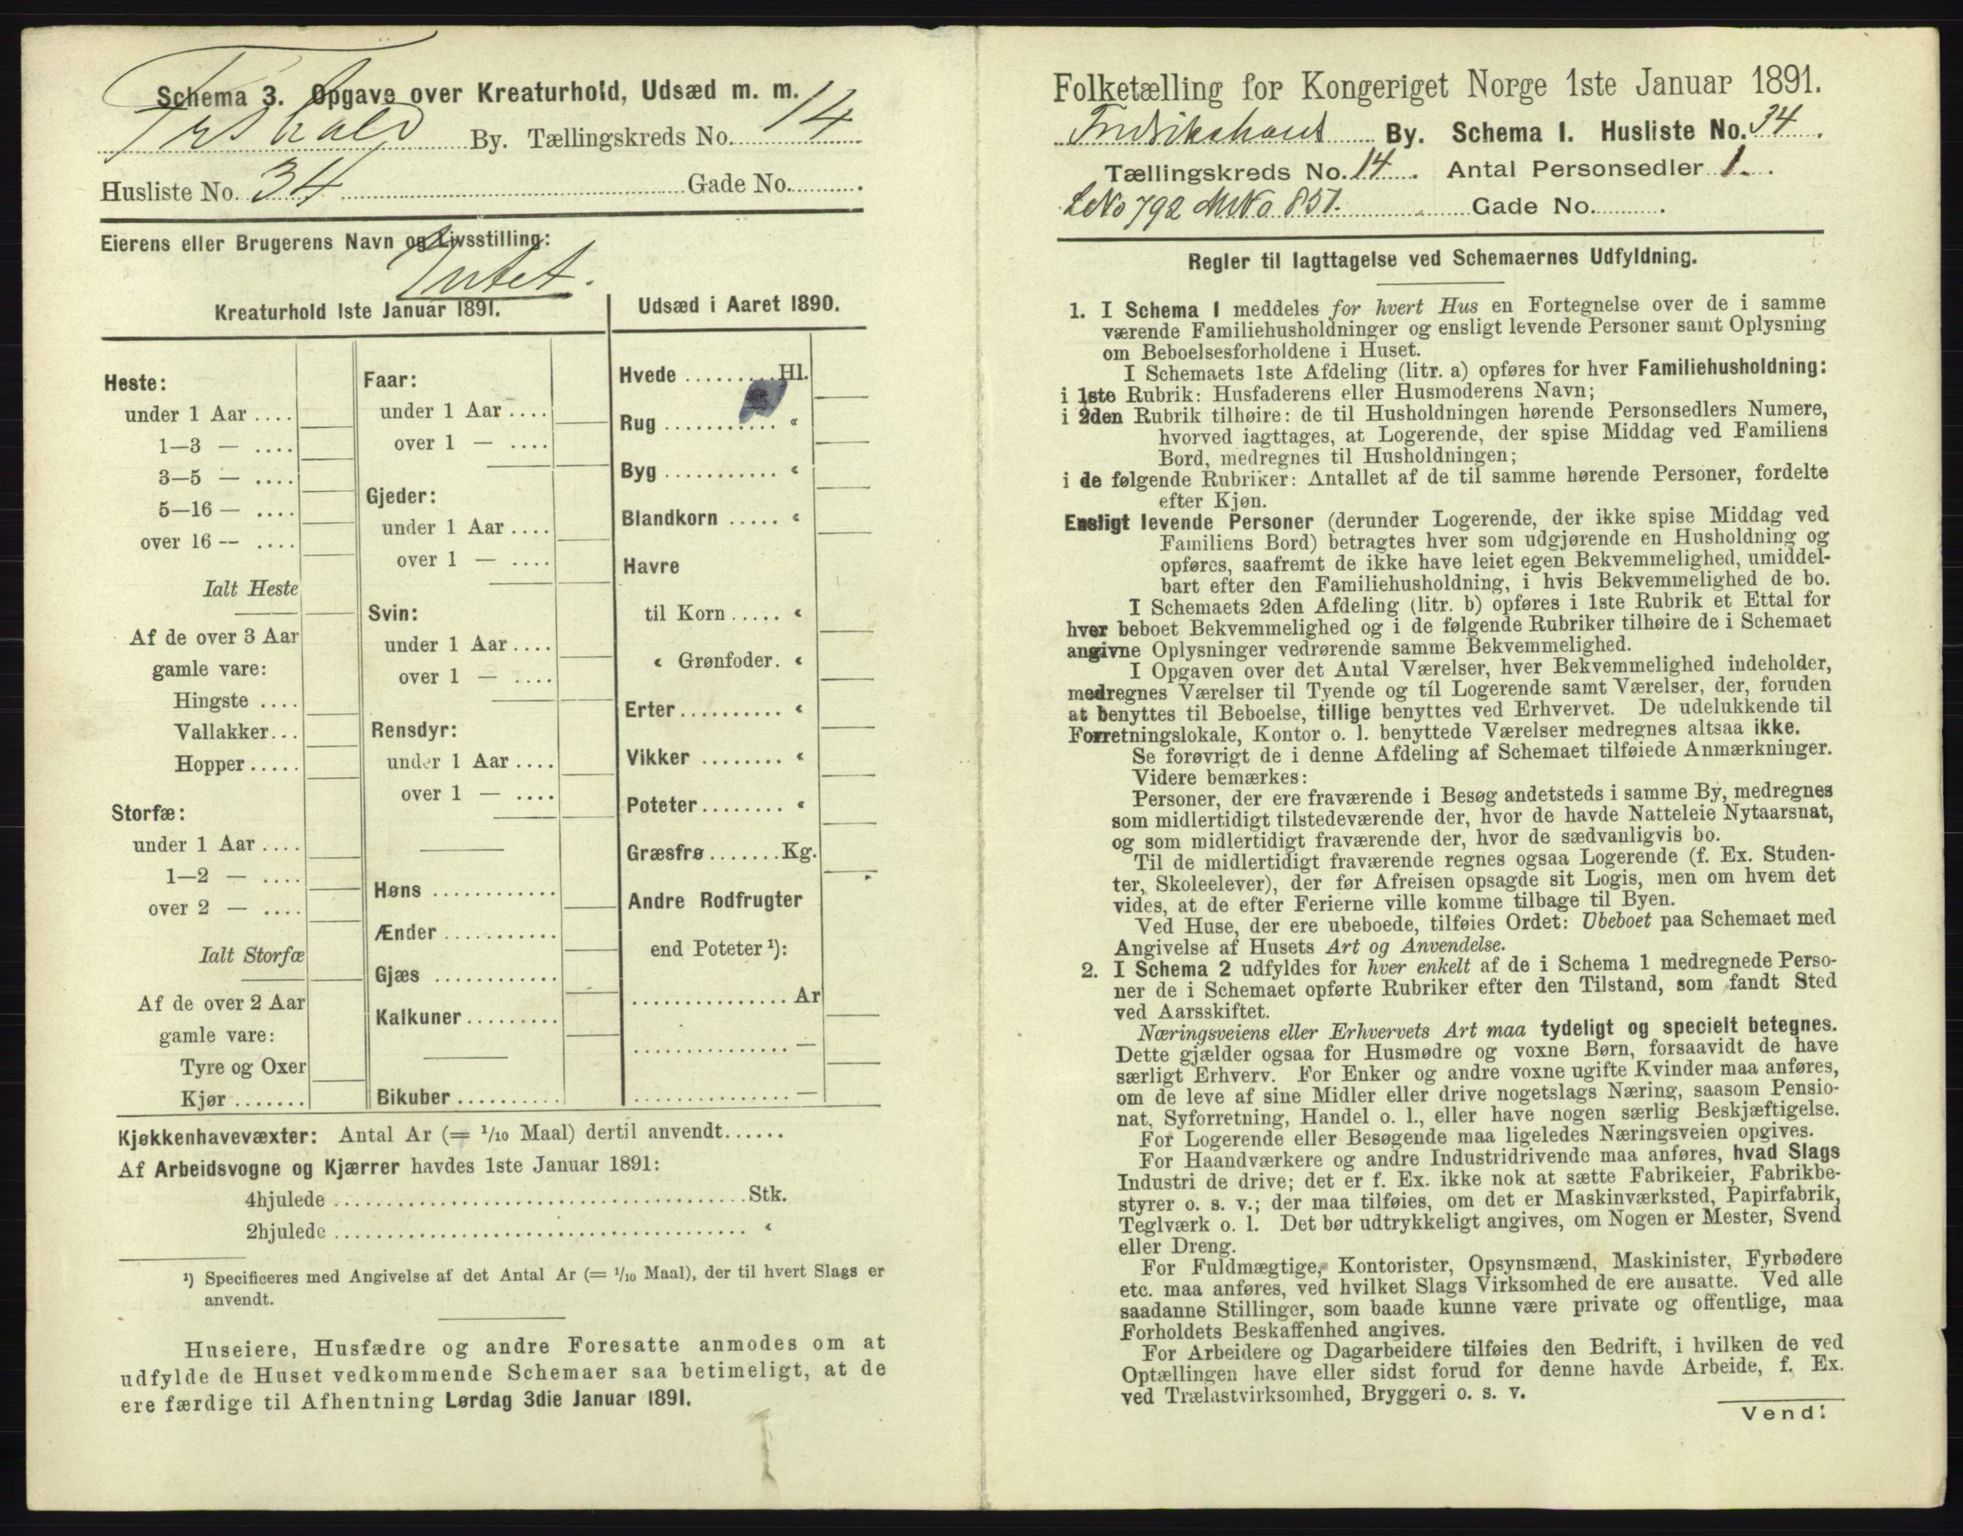 Schema 3. Opgave over Kreaturhold, Udsæd m. m.
By. Tællingskreds No. 14
Husliste No. 34 Gade No. .
Eierens eller Brugerens Navn og Livsstilling:
Intet.
Kreaturhold 1ste Januar 1891.
Heste:
under 1 Aar ....
1—3 — ....
3—5 — ....
5—16 — ....
over 16 — ....
Ialt Heste
Af de over 3 Aar
gamle vare:
Hingste ....
Vallakker...
Hopper.....
Storfæ:
under 1 Aar ....
1—2 — ....
over 2 — ....
Ialt Storfæ
Af de over 2 Aar
gamle vare:
Tyre og Oxer
Kjør .......
Faar:
under 1 Aar ....
over 1 — ....
Gjeder:
under 1 Aar ....
over 1 — ....
Svin:
under 1 Aar ....
over 1 — ....
Rensdyr:
under 1 Aar ....
over 1 — ....
Høns ............
Ænder ...........
Gjæs ............
Kalkuner.........
Bikuber ..........
Udsæd i Aaret 1890.
Hvede .........Hl.
Rug ........... «
Byg ........... «
Blandkorn ..... «
Havre
til Korn ..... «
« Grønfoder. «
Erter.......... «
Vikker ........ «
Poteter........ «
Græsfrø .......Kg.
Andre Rodfrugter
end Poteter ¹):
............... Ar
............... —
............... —
Kjøkkenhavevæxter: Antal Ar (= 1/10 Maal) dertil anvendt......
Af Arbeidsvogne og Kjærrer havdes 1ste Januar 1891:
4hjulede ........................................ Stk.
2hjulede ........................................ «
¹) Specificeres med Angivelse af det Antal Ar (= 1/10 Maal), der til hvert Slags er
anvendt.
Huseiere, Husfædre og andre Foresatte anmodes om at
udfylde de Huset vedkommende Schemaer saa betimeligt, at de
ere færdige til Afhentning Lørdag 3die Januar 1891.
Folketælling for Kongeriget Norge 1ste Januar 1891.
By. Schema I. Husliste No. 34.
Tællingskreds No. 14. Antal Personsedler 1.
LNo 792 MNo 857. Gade No. .
Regler til Iagttagelse ved Schemaernes Udfyldning.
1. I Schema 1 meddeles for hvert Hus en Fortegnelse over de i samme
værende Familiehusholdninger og ensligt levende Personer samt Oplysning
om Beboelsesforholdene i Huset.
I Schemaets 1ste Afdeling (litr. a) opføres for hver Familiehusholdning:
i 1ste Rubrik: Husfaderens eller Husmoderens Navn;
i 2den Rubrik tilhøire: de til Husholdningen hørende Personsedlers Numere,
hvorved iagttages, at Logerende, der spise Middag ved Familiens
Bord, medregnes til Husholdningen;
i de følgende Rubriker: Antallet af de til samme hørende Personer, fordelte
efter Kjøn.
Ensligt levende Personer (derunder Logerende, der ikke spise Middag ved
Familiens Bord) betragtes hver som udgjørende en Husholdning og
opføres, saafremt de ikke have leiet egen Bekvemmelighed, umiddel-
bart efter den Familiehusholdning, i hvis Bekvemmelighed de bo.
I Schemaets 2den Afdeling (litr. b) opføres i 1ste Rubrik et Ettal for
hver beboet Bekvemmelighed og i de følgende Rubriker tilhøire de i Schemaet
angivne Oplysninger vedrørende samme Bekvemmelighed.
I Opgaven over det Antal Værelser, hver Bekvemmelighed indeholder,
medregnes Værelser til Tyende og til Logerende samt Værelser, der, foruden
at benyttes til Beboelse, tillige benyttes ved Erhvervet. De udelukkende til
Forretningslokale, Kontor o. l. benyttede Værelser medregnes altsaa ikke.
Se forøvrigt de i denne Afdeling af Schemaet tilføiede Anmærkninger.
Videre bemærkes:
Personer, der ere fraværende i Besøg andetsteds i samme By, medregnes
som midlertidigt tilstedeværende der, hvor de havde Natteleie Nytaarsnat,
og som midlertidigt fraværende der, hvor de sædvanligvis bo.
Til de midlertidigt fraværende regnes ogsaa Logerende (f. Ex. Studen-
ter, Skoleelever), der før Afreisen opsagde sit Logis, men om hvem det
vides, at de efter Ferierne ville komme tilbage til Byen.
Ved Huse, der ere ubeboede, tilføies Ordet: Ubeboet paa Schemaet med
Angivelse af Husets Art og Anvendelse.
2. I Schema 2 udfyldes for hver enkelt af de i Schema 1 medregnede Perso-
ner de i Schemaet opførte Rubriker efter den Tilstand, som fandt Sted
ved Aarsskiftet.
Næringsveiens eller Erhvervets Art maa tydeligt og specielt betegnes.
Dette gjælder ogsaa for Husmødre og voxne Børn, forsaavidt de have
særligt Erhverv. For Enker og andre voxne ugifte Kvinder maa anføres,
om de leve af sine Midler eller drive nogetslags Næring, saasom Pensio-
nat, Syforretning, Handel o. l., eller have nogen særlig Beskjæftigelse.
For Logerende eller Besøgende maa ligeledes Næringsveien opgives.
For Haandværkere og andre Industridrivende maa anføres, hvad Slags
Industri de drive; det er f. Ex. ikke nok at sætte Fabrikeier, Fabrikbe-
styrer o. s. v.; der maa tilføies, om det er Maskinværksted, Papirfabrik,
Teglværk o. l. Det bør udtrykkeligt angives, om Nogen er Mester, Svend
eller Dreng.
For Fuldmægtige, Kontorister, Opsynsmænd, Maskinister, Fyrbødere
etc. maa anføres, ved hvilket Slags Virksomhed de ere ansatte. Ved alle
saadanne Stillinger, som baade kunne være private og offentlige, maa
Forholdets Beskaffenhed angives.
For Arbeidere og Dagarbeidere tilføies den Bedrift, i hvilken de ved
Optællingen have eller sidst forud for denne havde Arbeide, f. Ex.
ved Trælastvirksomhed, Bryggeri o. s. v.
Vend!